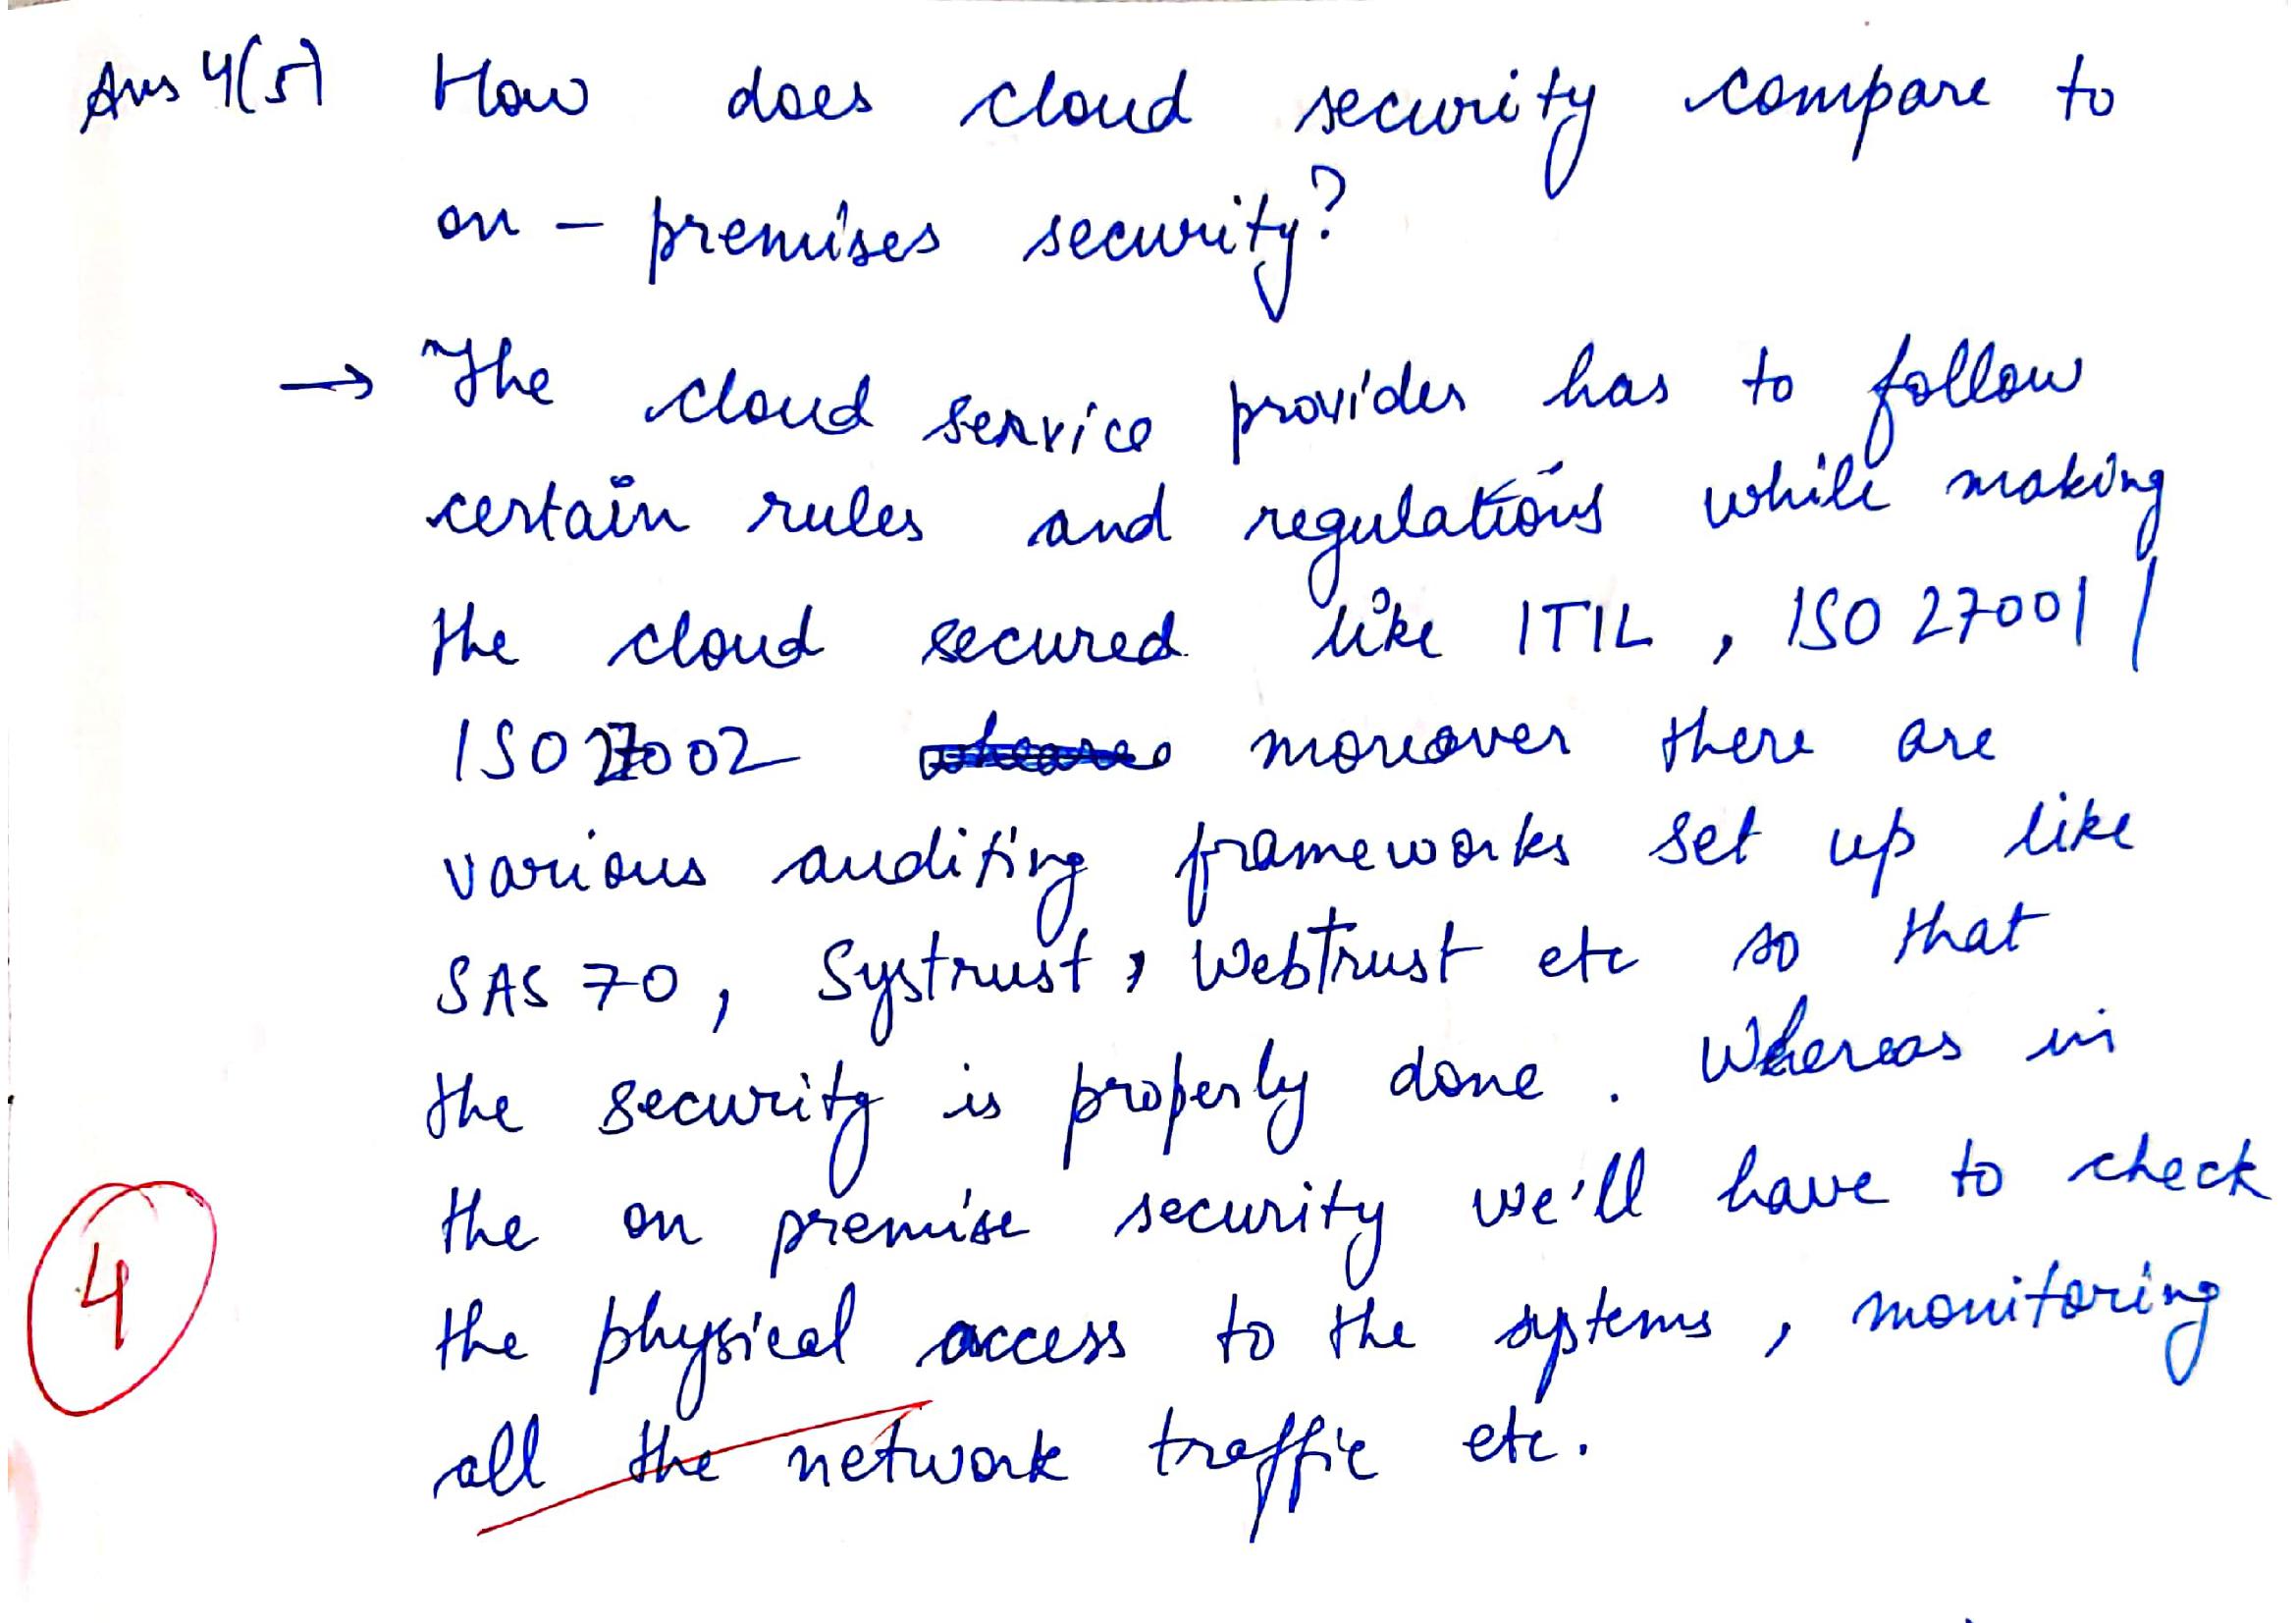 Ans 4(5) How does cloud security compare to
on - premises security?
→ The cloud service provider has to follow
certain rules and regulations while making
the cloud secured like ITIL , ISO 27001 /
ISO 27002 moreover there are
various auditing frameworks set up like
SAS 70, Systrust, WebTrust etc so that
the security is properly done . Whereas in
the on premise security we'll have to check
4
the physical access to the systems, monitoring
all the network traffic etc.